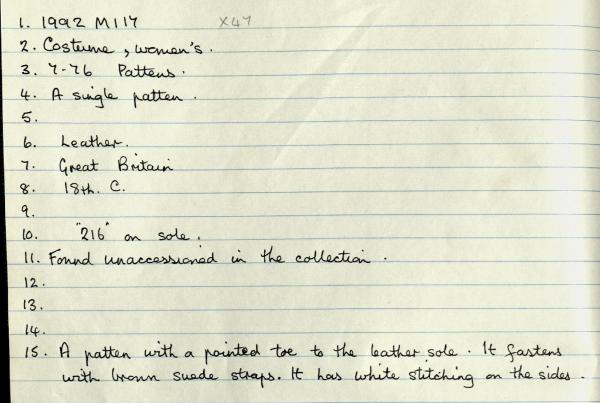 1. 1992 M117 X47
2. Costume, women's.
3. 7-76 Pattens.
4. A single patten.
5.
6. Leather.
7. Great Britain
8. 18th. C.
9.
10. "216" on sole.
11. Found unaccessioned in the collection.
12.
13.
14.
15. A patten with a pointed toe to the leather sole. It fastens
with brown suede straps. It has white stitching on the sides.